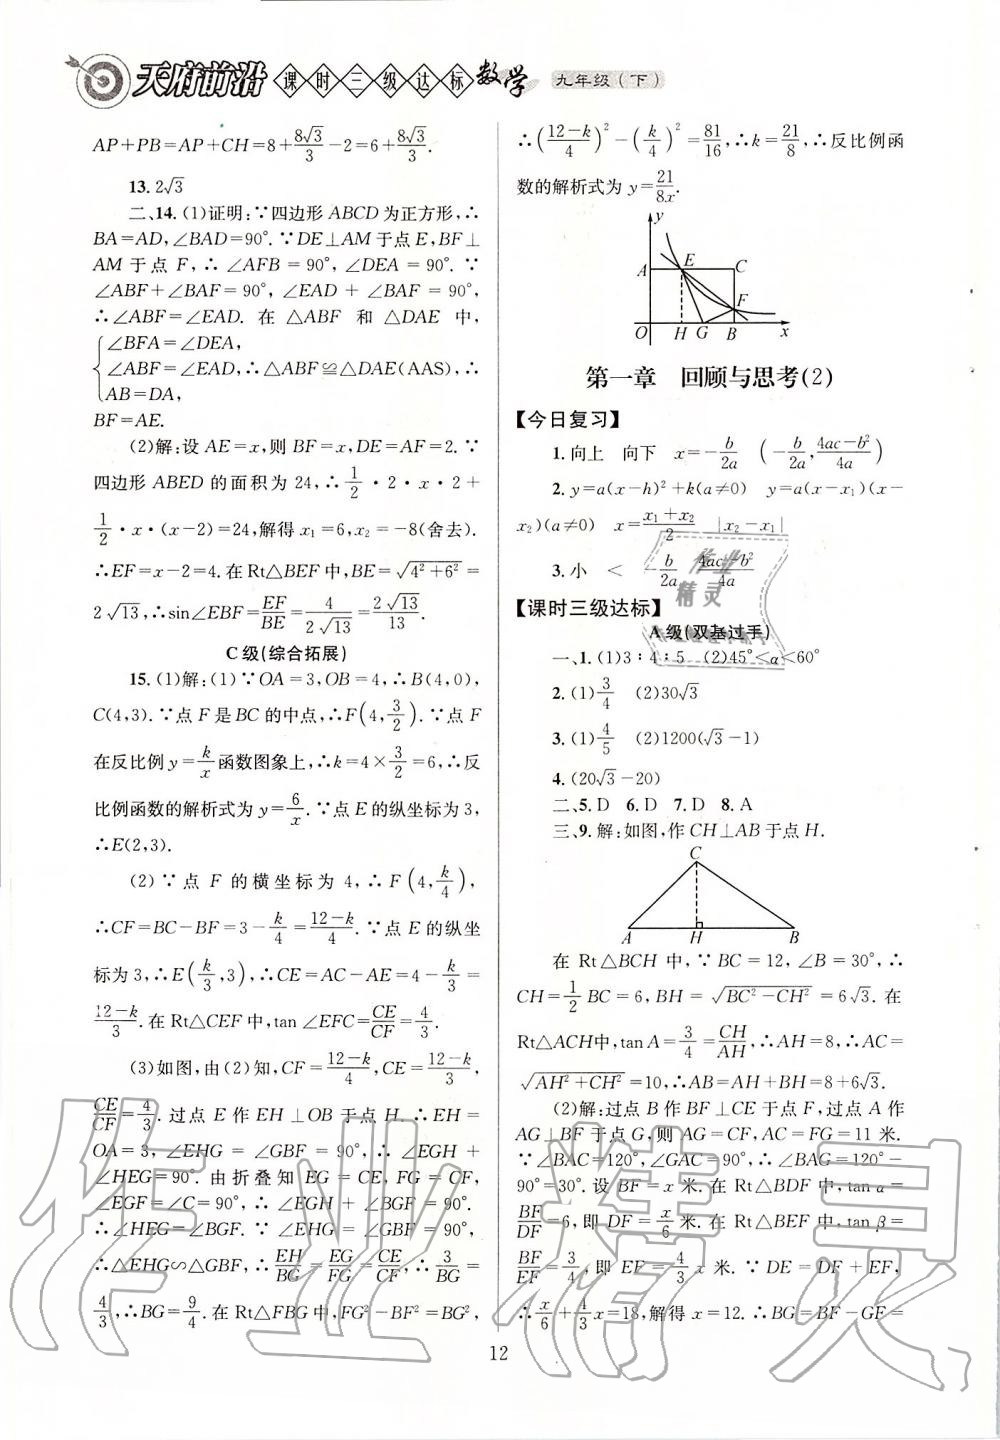 天府前沿 课时三级达标 数学 九年级(下)
AP+PB=AP+CH=8+\frac{8\sqrt{3}}{3}-2=6+\frac{8\sqrt{3}}{3}.
13. 2\sqrt{3}
二、14. (1)证明:∵四边形 ABCD 为正方形,∴
BA=AD,∠BAD=90°. ∵DE⊥AM于点 E,BF⊥
AM 于 点 F,∴ ∠AFB = 90°,∠DEA = 90°. ∵
∠ABF+∠BAF=90°, ∠EAD + ∠BAF = 90°,
∴∠ABF=∠EAD. 在 △ABF 和 △DAE 中,
{∠BFA=∠DEA,
∠ABF=∠EAD,∴△ABF≌△DAE(AAS),∴
AB=DA,
BF=AE.
(2)解:设 AE=x,则 BF=x,DE=AF=2. ∵
四边形 ABED 的面积为 24,∴\frac{1}{2}·2·x·2+
\frac{1}{2}·x·(x-2)=24,解得 x₁=6,x₂=-8(舍去).
∴EF=x-2=4. 在 Rt△BEF 中,BE=\sqrt{4²+6²}=
2\sqrt{13},∴sin∠EBF=\frac{EF}{BE}=\frac{4}{2\sqrt{13}}=\frac{2\sqrt{13}}{13}.
C级(综合拓展)
15. (1)解:(1)∵OA=3,OB=4,∴B(4,0),
C(4,3). ∵点 F 是 BC 的中点,∴F(4,\frac{3}{2}). ∵点 F
在反比例 y=\frac{k}{x}函数图象上,∴k=4×\frac{3}{2}=6,∴反
比例函数的解析式为 y=\frac{6}{x}. ∵点 E 的纵坐标为 3,
∴E(2,3).
(2) ∵点 F 的横坐标为 4,∴F(4,\frac{k}{4}),
∴CF=BC-BF=3-\frac{k}{4}=\frac{12-k}{4}. ∵点 E 的纵坐
标为 3,∴E(\frac{k}{3},3),∴CE=AC-AE=4-\frac{k}{3}=
\frac{12-k}{3}. 在 Rt△CEF 中,tan ∠EFC=\frac{CE}{CF}=\frac{4}{3}.
(3)如图,由(2)知,CF=\frac{12-k}{4},CE=\frac{12-k}{3},
\frac{CE}{CF}=\frac{4}{3}. 过点 E 作 EH⊥OB 于点 H ∴EH=
OA=3,∴∠EHG=∠GBF=90°,∴∠EGH+
∠HEG=90°. 由折叠知 EG=CE,FG=CF,
∠EGF=∠C=90°,∴∠EGH+∠BGF=90°.
∴∠HEG=∠BGF. ∵∠EHG=∠GBF=90°,
∴△EHG∽△GBF,∴\frac{EH}{BG}=\frac{EG}{FG}=\frac{CE}{CF},∴\frac{3}{BG}=
\frac{4}{3},∴BG=\frac{9}{4}. 在 Rt△FBG 中,FG²-BF²=BG²,
∴(\frac{12-k}{4})²-(\frac{k}{4})²=\frac{81}{16},∴k=\frac{21}{8},∴反比例函
数的解析式为 y=\frac{21}{8x}.
y A E C F O H G B x
第一章 回顾与思考(2)
【今日复习】
1. 向上 向下 x=-\frac{b}{2a} (-\frac{b}{2a},\frac{4ac-b²}{4a})
2. y=a(x-h)²+k(a≠0) y=a(x-x₁)(x-
x₂)(a≠0) x=\frac{x₁+x₂}{2} |x₂-x₁|
3. 小 < -\frac{b}{2a} \frac{4ac-b²}{4a}
【课时三级达标】
A级(双基过手)
一、1. (1)3:4:5 (2)45°<α<60°
2. (1)\frac{3}{4} (2)30\sqrt{3}
3. (1)\frac{4}{5} (2)1200(\sqrt{3}-1)
4. (20\sqrt{3}-20)
二、5. D 6. D 7. D 8. A
三、9. 解:如图,作 CH⊥AB 于点 H.
C A H B
在 Rt△BCH 中,∵BC=12,∠B=30°,∴
CH=\frac{1}{2}BC=6,BH=\sqrt{BC²-CH²}=6\sqrt{3}. 在
Rt△ACH中,tan A=\frac{3}{4}=\frac{CH}{AH},∴AH=8,∴AC=
\sqrt{AH²+CH²}=10,∴AB=AH+BH=8+6\sqrt{3}.
(2)解:过点 B 作 BF⊥CE 于点 F,过点 A 作
AG⊥BF 于点 G,则 AG=CF,AC=FG=11 米.
∵∠BAC=120°,∠GAC=90°,∴∠BAG=120°-
90°=30°. 设 BF=x 米. 在 Rt△BDF 中,tan α=
\frac{BF}{DF}=6,即 DF=\frac{x}{6}米. 在 Rt△BEF 中,tan β=
\frac{BF}{EF}=\frac{3}{4},即 EF=\frac{4}{3}x 米. ∵DE=DF+EF,
∴\frac{x}{6}+\frac{4}{3}x=18,解得 x=12. ∴BG=BF-GF=
12
作业精灵
作业精灵